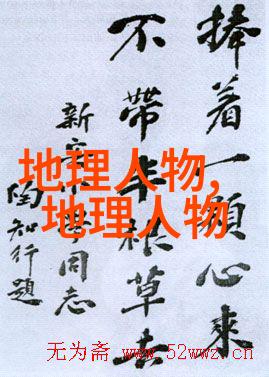 捧着一顆心來
不帶半根草去
新安小學同志
陶知行題
地理人物,
地理人物
无为斋 www.52wwz.cn